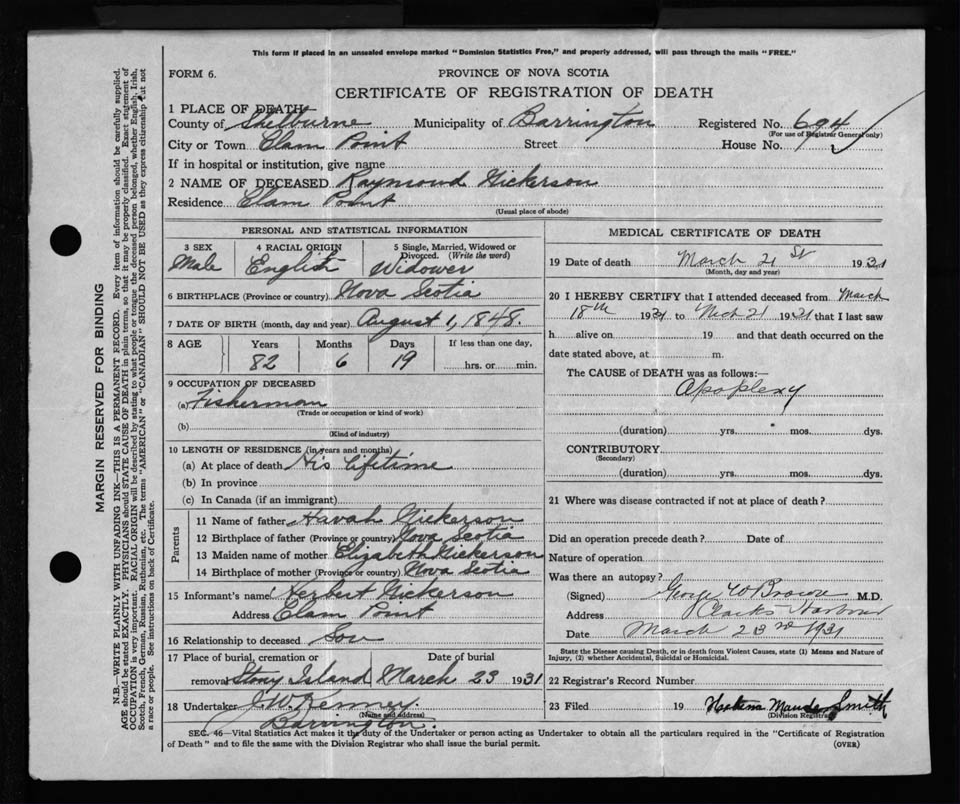 This form if placed in an unsealed envelope marked "Dominion Statistics Free," and properly addressed, will pass through the mails "FREE."
FORM 6.
PROVINCE OF NOVA SCOTIA
CERTIFICATE OF REGISTRATION OF DEATH
1 PLACE OF DEATH—
County of Shelburne Municipality of Barrington Registered No. 694
(For use of Registrar General only)
City or Town Clam Point Street House No.
If in hospital or institution, give name
2 NAME OF DECEASED Raymond Nickerson
Residence Clam Point
(Usual place of abode)
PERSONAL AND STATISTICAL INFORMATION
3 SEX 4 RACIAL ORIGIN 5 Single, Married, Widowed or Divorced. (Write the word)
Male English Widower
6 BIRTHPLACE (Province or country) Nova Scotia
7 DATE OF BIRTH (month, day and year) August 1, 1848.
8 AGE Years Months Days If less than one day,
82 6 19 hrs. or min.
9 OCCUPATION OF DECEASED
(a) Fisherman
(Trade or occupation or kind of work)
(b)
(Kind of industry)
10 LENGTH OF RESIDENCE (in years and months)
(a) At place of death His lifetime
(b) In province
(c) In Canada (if an immigrant)
Parents
11 Name of father Nickerson
12 Birthplace of father (Province or country) Nova Scotia
13 Maiden name of mother Elizabeth Nickerson
14 Birthplace of mother (Province or country) Nova Scotia
15 Informant's name Herbert Nickerson
Address Clam Point
16 Relationship to deceased Son
17 Place of burial, cremation or removal Date of burial
Stony Island March 23 1931
18 Undertaker J. W. Kenney.
(Name and address)
Barrington.
MEDICAL CERTIFICATE OF DEATH
19 Date of death March 21 st 1931
(Month, day and year)
20 I HEREBY CERTIFY that I attended deceased from March
18th 1931 to Mch 21 1931 that I last saw
h alive on 19 and that death occurred on the
date stated above, at m.
The CAUSE of DEATH was as follows:
Apoplexy
(duration) yrs. mos. dys.
CONTRIBUTORY
(Secondary)
(duration) yrs. mos. dys.
21 Where was disease contracted if not at place of death?
Did an operation precede death? Date of
Nature of operation
Was there an autopsy?
(Signed) George W Brown M.D.
Address Clarks Harbour
Date March 23rd 1931
State the Disease causing Death, or in death from Violent Causes, state (1) Means and Nature of
Injury, (2) whether Accidental, Suicidal or Homicidal.
22 Registrar's Record Number
23 Filed 19 Maude Smith
(Division Registrar)
SEC. 46—Vital Statistics Act makes it the duty of the Undertaker or person acting as Undertaker to obtain all the particulars required in the "Certificate of Registration
of Death" and to file the same with the Division Registrar who shall issue the burial permit.
(OVER)
MARGIN RESERVED FOR BINDING
N.B.—WRITE PLAINLY WITH UNFADING INK—THIS IS A PERMANENT RECORD. Every item of information should be carefully supplied.
AGE should be stated EXACTLY. PHYSICIANS should STATE CAUSE OF DEATH in plain terms, so that it may be properly classified. Exact statement of
OCCUPATION is very important. RACIAL ORIGIN will be described by stating to what people or tongue the deceased person belonged, whether English, Irish,
Scotch, French, German, Russian, Ruthenian, etc. The terms "AMERICAN" or "CANADIAN" SHOULD NOT BE USED as they express citizenship but not
a race or people. See instructions on back of Certificate.